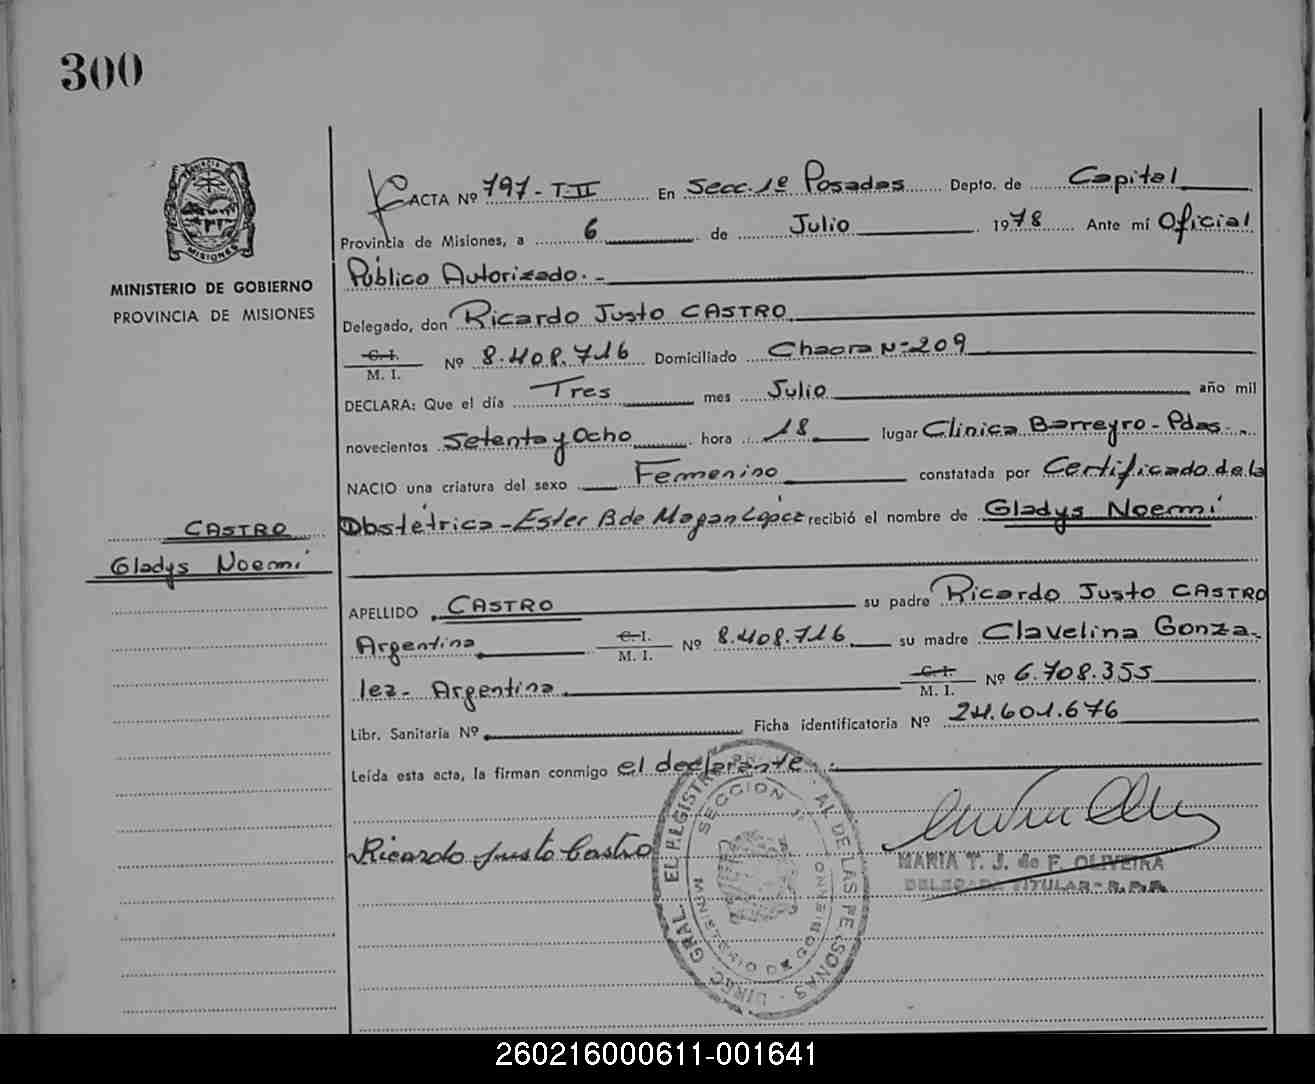 300
PROVINCIA
MISIONES
MINISTERIO DE GOBIERNO
PROVINCIA DE MISIONES
CASTRO
Gladys Noemí
ACTA Nº 797 - T-II En Secc. 1º Posadas Depto. de Capital
Provincia de Misiones, a 6 de Julio 1978 Ante mí Oficial
Público Autorizado. -
Delegado, don Ricardo Justo CASTRO
C. I.
M. I. Nº 8.408.716 Domiciliado Chacra Nº 209
DECLARA: Que el día Tres mes Julio año mil
novecientos Setenta y Ocho hora 18 lugar Clinica Barreyro - Pdas -
NACIO una criatura del sexo Femenino constatada por Certificado de la
Obstétrica - Ester B de Magan López recibió el nombre de Gladys Noemí
APELLIDO CASTRO su padre Ricardo Justo CASTRO
Argentina C. I. M. I. Nº 8.408.716 su madre Clavelina Gonza-
lez - Argentina C. I. M. I. Nº 6.708.355
Libr. Sanitaria Nº Ficha identificatoria Nº 24.601.676
Leída esta acta, la firman conmigo el declarante.
Ricardo Justo Castro
MARIA T. J. de F. OLIVEIRA
DELEGADA TITULAR - R.P.P.
DIREC. GRAL. EL REGISTRO DE LAS PERSONAS
SECCION 1ª
MINISTERIO DE GOBIERNO
260216000611-001641